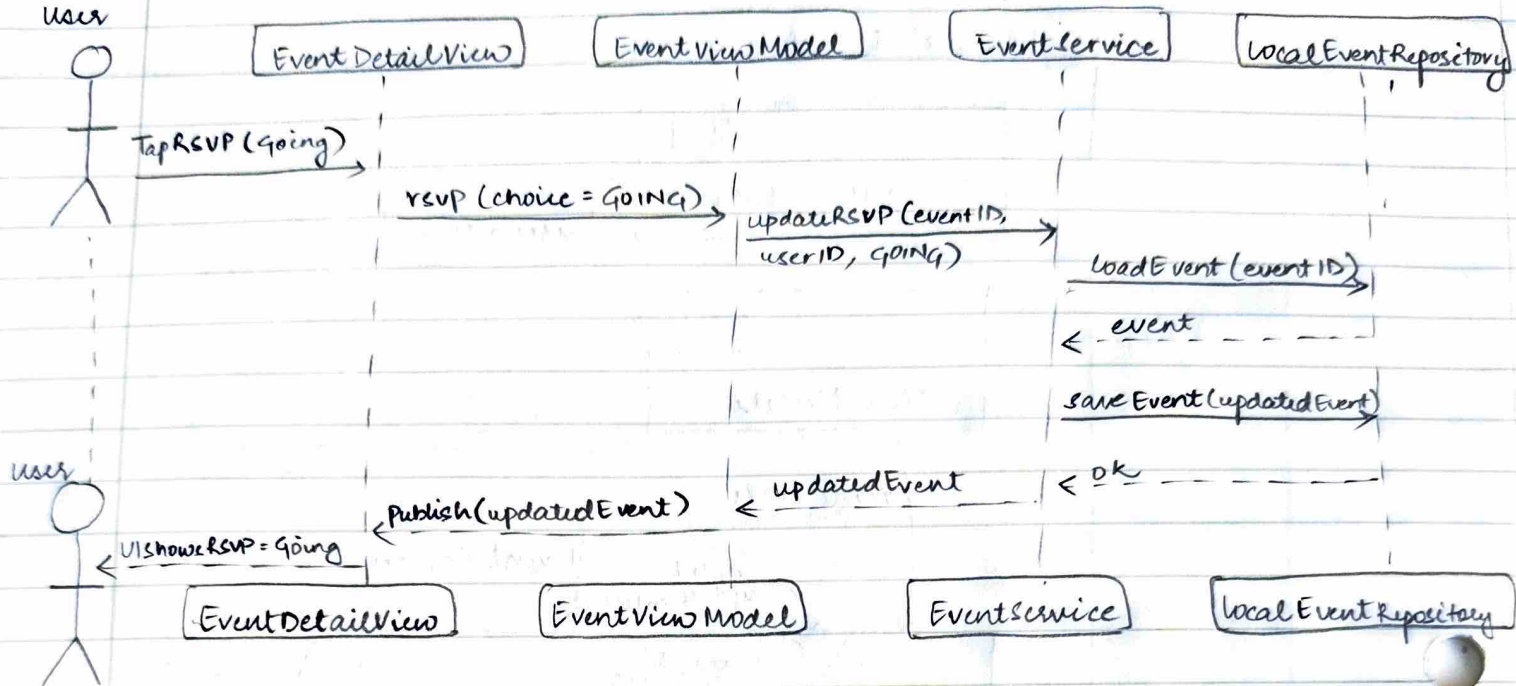 User
EventDetailView
EventViewModel
EventService
LocalEventRepository
TapRSVP (Going)
rsvp (choice = GOING)
updateRSVP (eventID,
userID, GOING)
loadEvent (eventID)
event
saveEvent (updatedEvent)
ok
updatedEvent
Publish (updatedEvent)
UIshowsRSVP = Going
User
EventDetailView
EventViewModel
EventService
LocalEventRepository